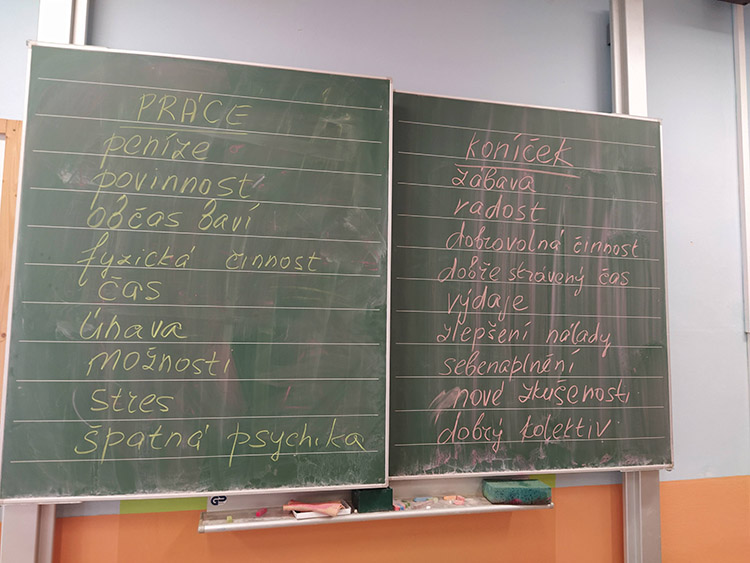 PRÁCE
peníze
povinnost
občas baví
fyzická činnost
čas
únava
možnosti
stres
špatná psychika
koníček
zábava
radost
dobrovolná činnost
dobře strávený čas
výdaje
zlepšení nálady
sebenaplnění
nové zkušenosti
dobrý kolektiv